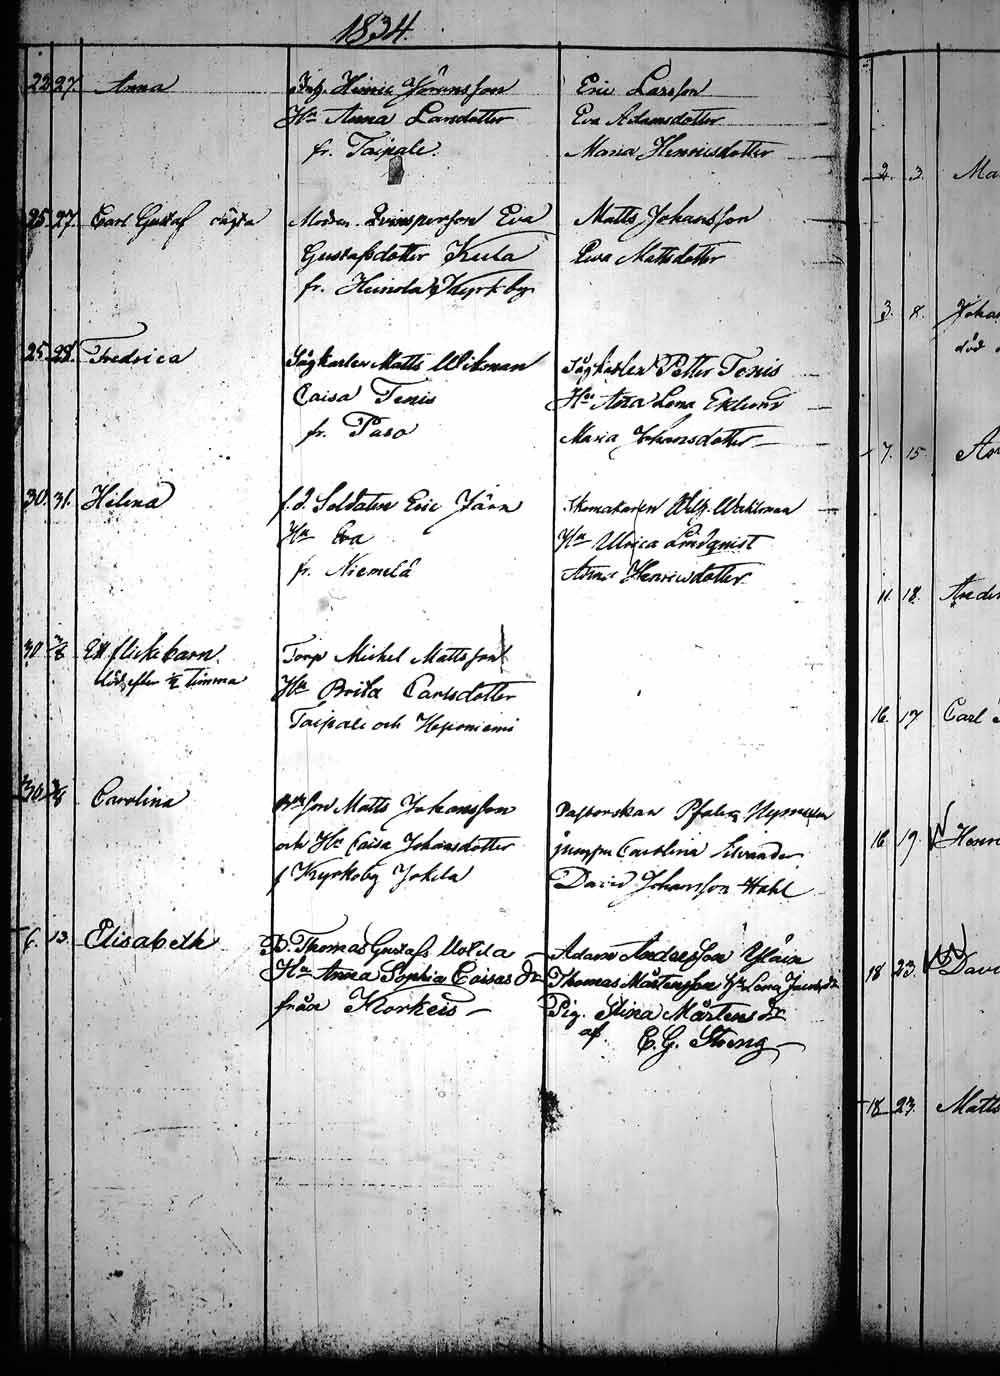 1834.
22 27. Anna
Inh. Henric Jöransson
Hu Anna Larsdotter
fr. Taipale.
Eric Larsson
Eva Adamsdotter
Maria Henricsdotter
25. 27. Carl Gustaf oägta
Modren Qvinsperson Eva
Gustafsdotter Kula
fr. Heinola Kyrkby
Matts Johansson
Ewa Mattsdotter
25. 28. Fredrica
Sågkarlen Matts Wikman
Caisa Tenis
fr. Paso
Sågkarlen Petter Tenis
Hu Anna Lena Eklund
Maria Johansdotter
30. 31. Helena
f.d. Soldaten Eric Järn
Hu Eva
fr. Niemelä
Skomakaren Wilh. Wahlman
Hu Ulrica Lindquist
Anna Henricsdotter
30 Ett flickebarn.
död efter ½ Timma
Torp Michel Mattsson
Hu Brita Carlsdotter
Taipale och Heponiemi
30 Carolina
Matts Johansson
och Hu Caisa Johansdotter
f Kyrkoby Jokela
Pastorskan
jungfru Carolina
David Johansson Hahl
6. 13. Elisabeth
B. Thomas Gustafs
Hu Anna Sophia Caisas dr
från Korkeis
Adam Andersson
Thomas Mårtensson Hu Lena
Pig. Stina Mårtens dr
af E. G. Streng
2. 3. Ma
3. 8. Johan
död
7. 15. An
11. 18. Ander
16. 17 Carl
16 19. Henri
18 23. Davi
18 23. Matts